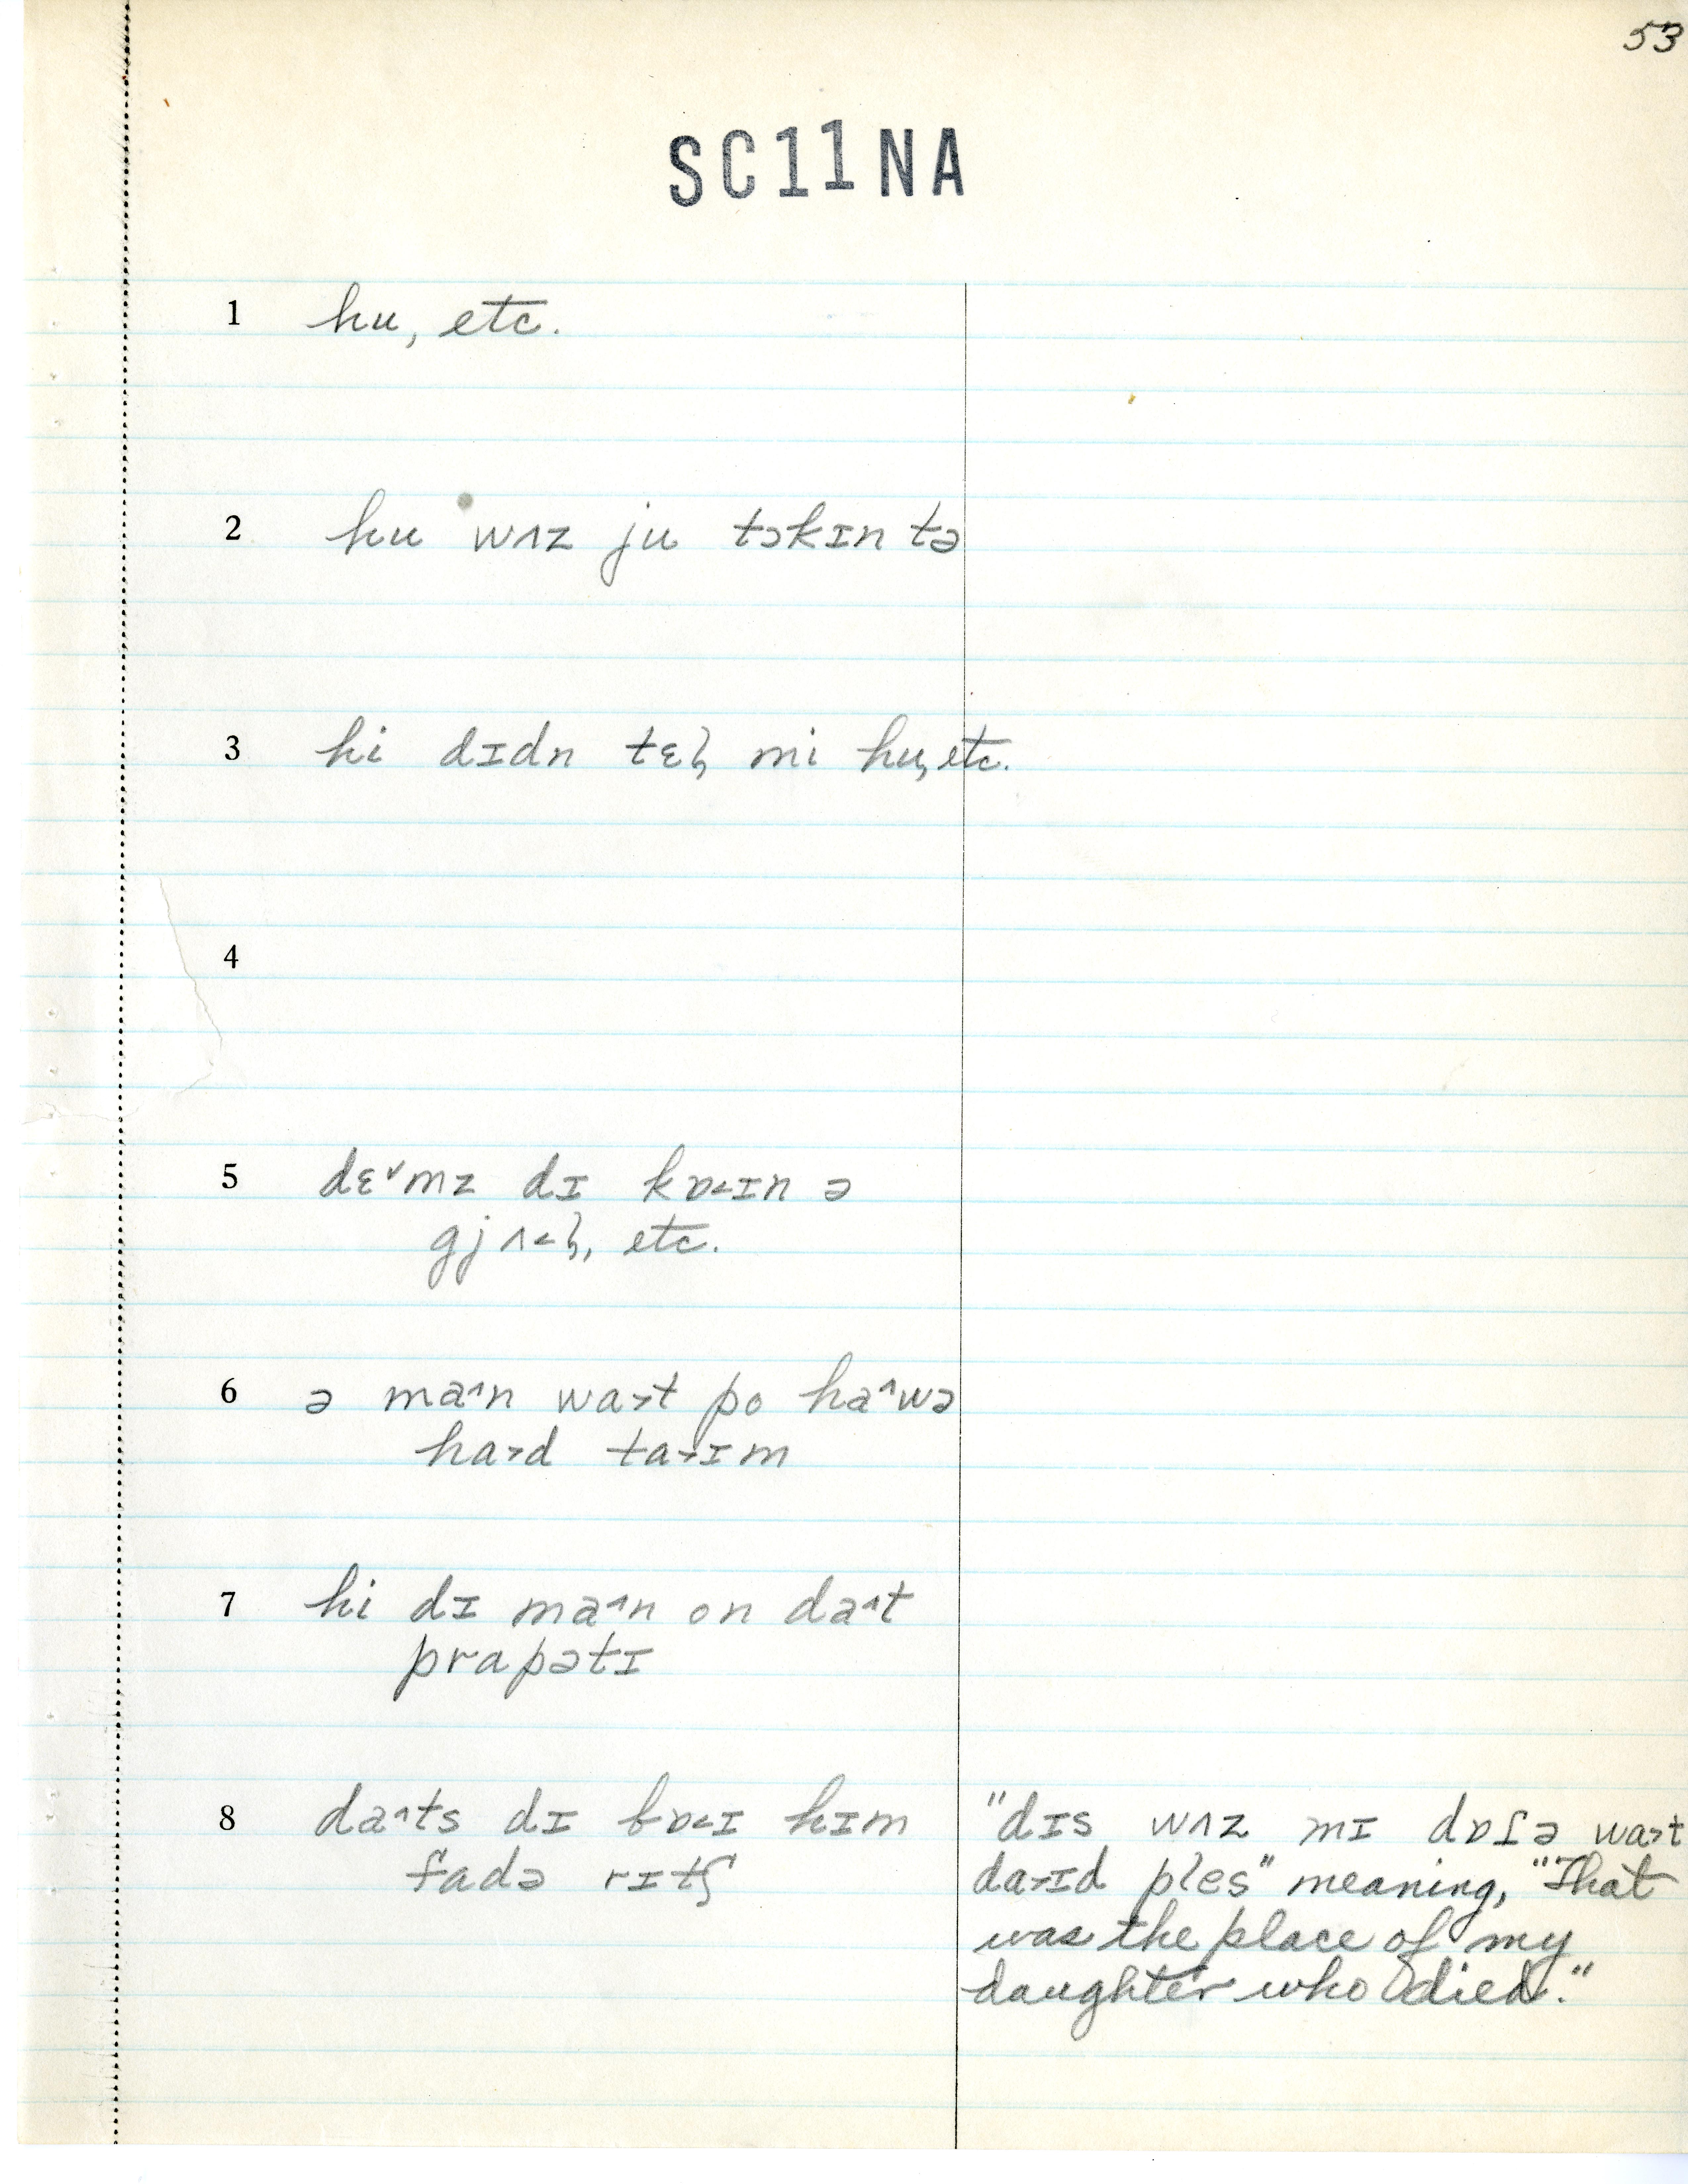 53
SC11NA
1 hu, etc.
2 hu wʌz ju tɔkɪn tə
3 hi dɪdn tɛl̡ mi hu, etc.
4
5 dɛ˅mz dɪ kɒ˂ɪn ə
gjʌ˂l̡, etc.
6 ə ma˄n wa˃t po ha˄wə
ha˃d ta˃ɪm
7 hi dɪ ma˄n on da˄t
prapətɪ
8 da˄ts dɪ bɒ˂ɪ hɪm
fadə rɪtʃ
"dɪs wʌz mɪ dɒɾə wa˃t
da˃ɪd ples" meaning, "That
was the place of my
daughter who died."